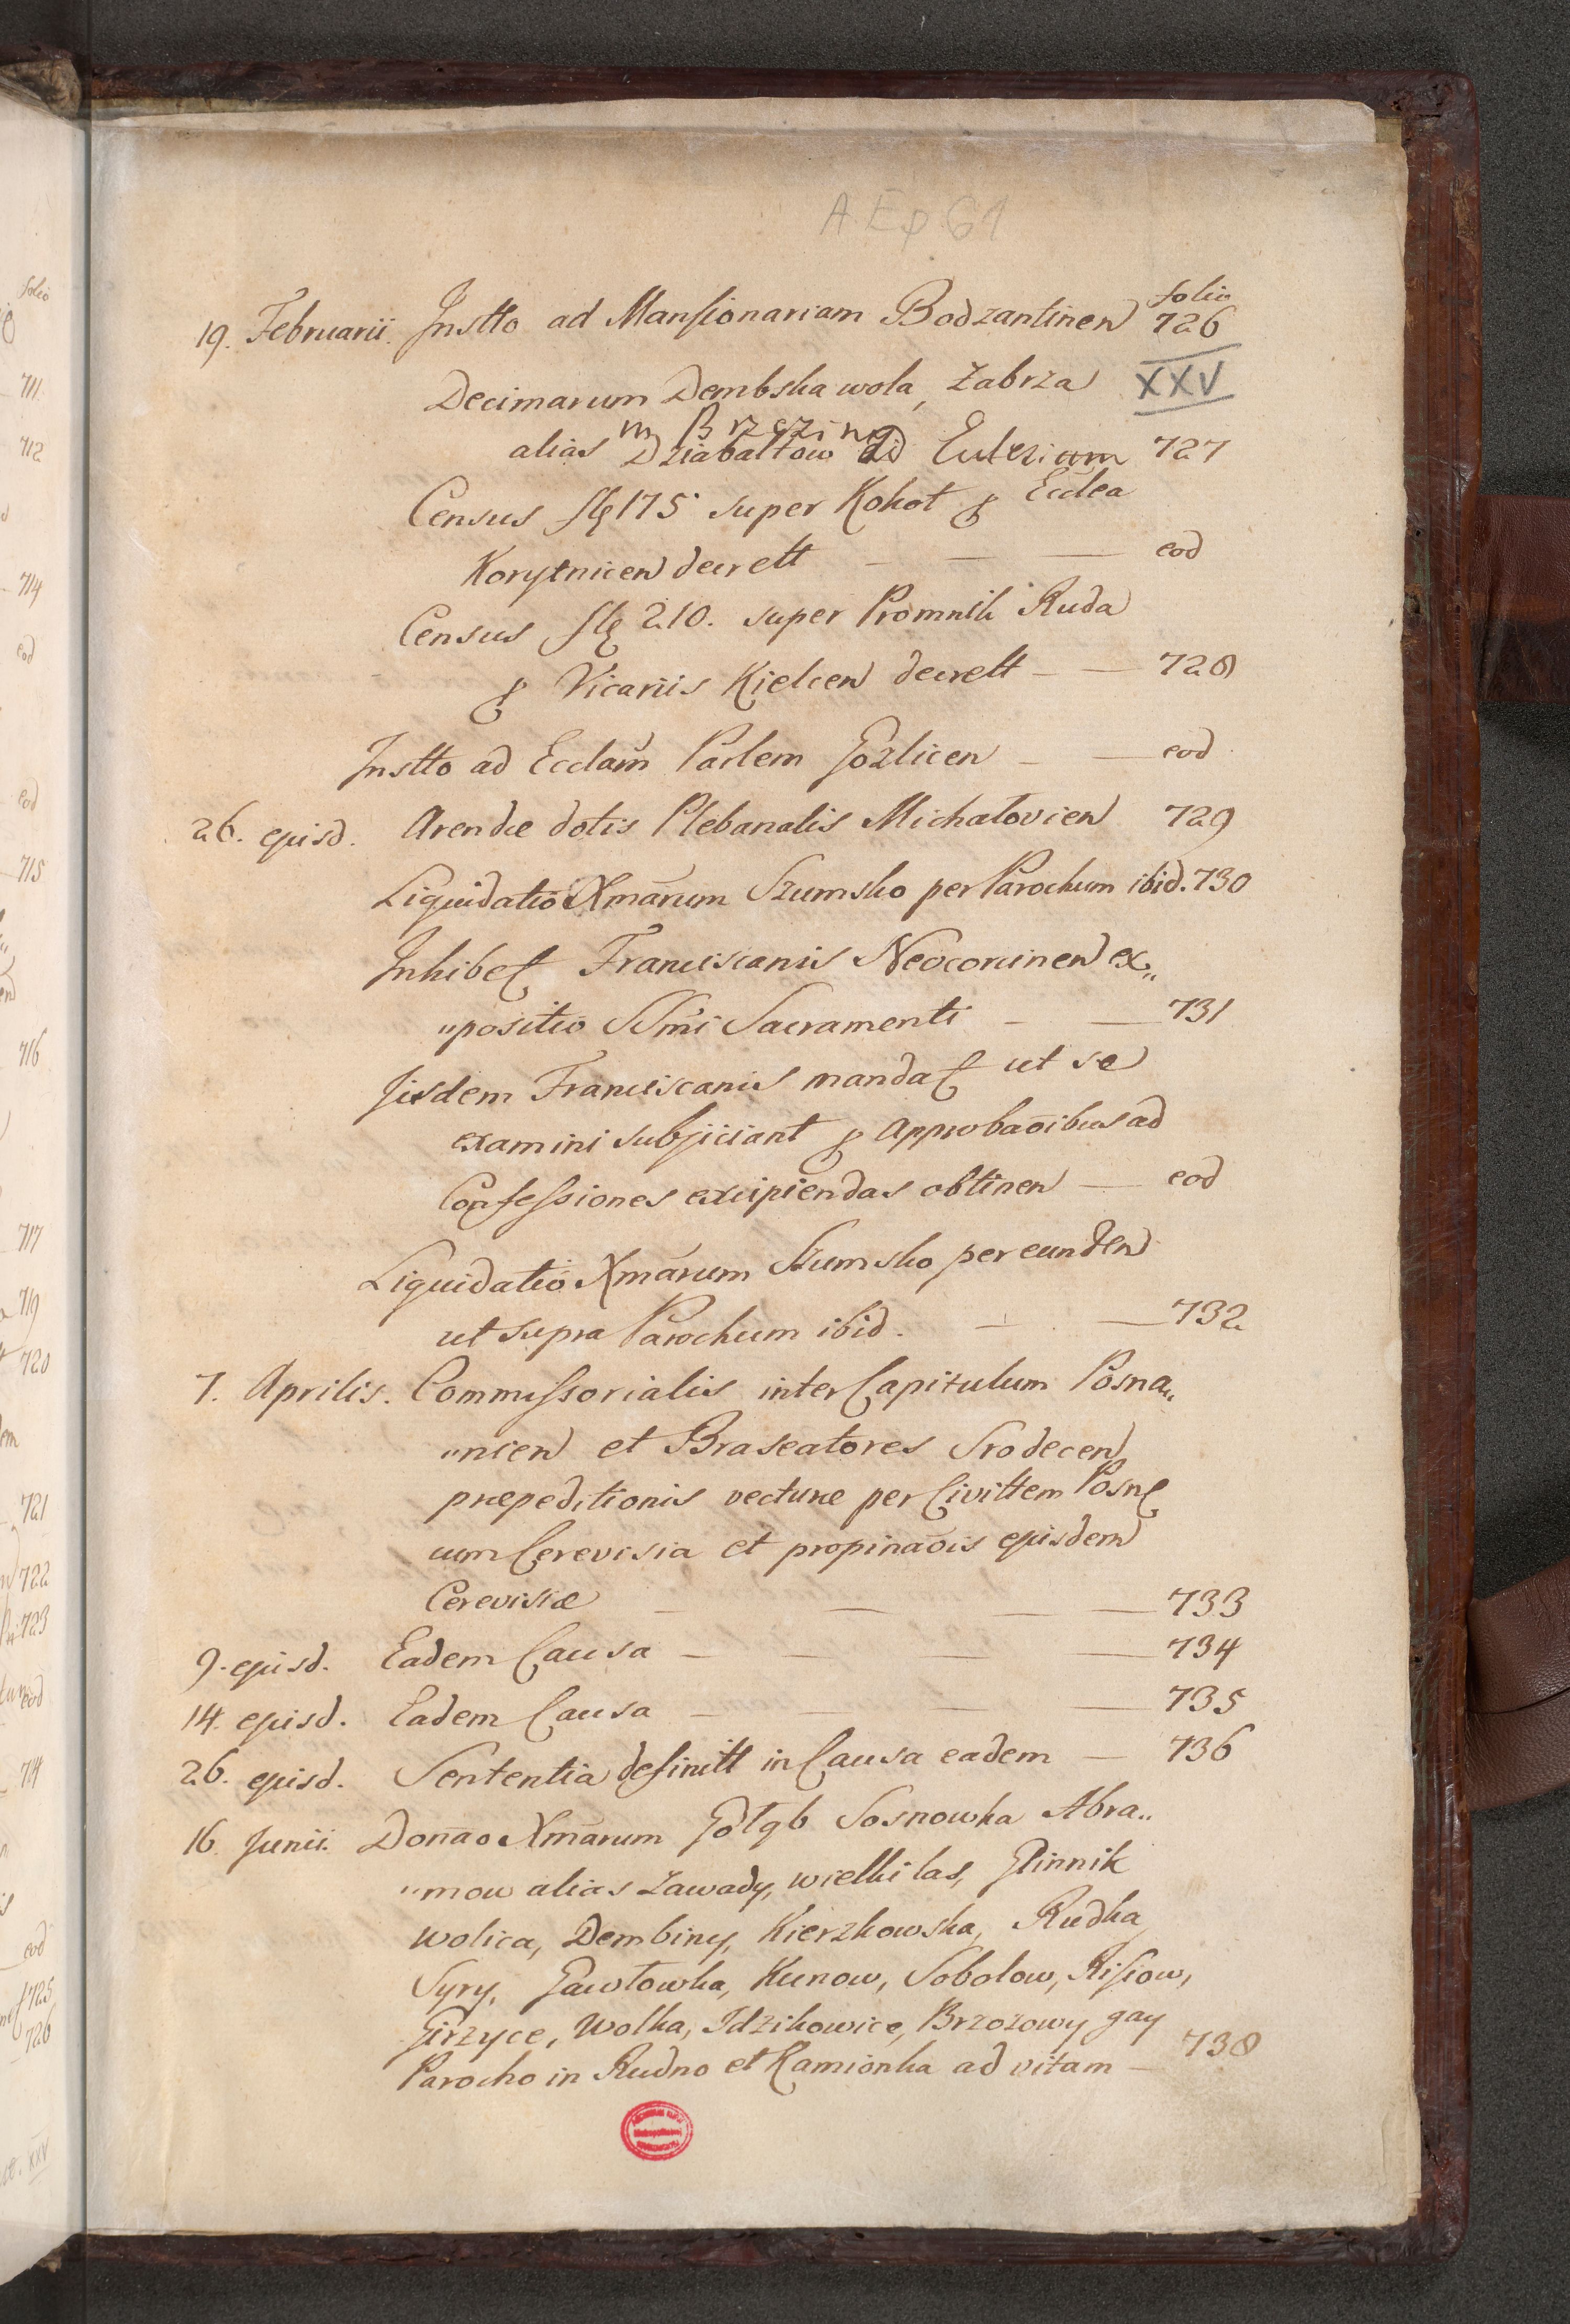 A.Ep 61
folio
19. Februarii. Instto ad Mansionariam Bodzantinen 726
XXV
Decimarum Dembska wola, Zabrza
in Brzezing
alias Dziabaltow ad Eccleziam 727
Census flę 175 super Kokot ꝑ Ecclea
Korytnicen decrett — — — eod
Census flę 210. super Promnik Ruda
ꝑ Vicariis Kielcen decrett — — 728
Instto ad Ecclam̄ Parlem Gozlicen — — eod
26. ejusd. Arendæ dotis Plebanalis Michałovien 729
Liquidatio Xmārum Szumsko per Parochum ibid. 730
Inhibet Franciscanis Neocorcinen ex„
„positio SSmi Sacramenti — — 731
Iisdem Franciscanis mandat ut se
examini subjiciant ꝑ approbaōibus ad
Confessiones excipiendas obtinen — eod
Liquidatio Xmārum Szumsko per eunden
ut supra Parochum ibid. — — 732
7. Aprilis. Commissorialis inter Capitulum Posna„
„nien et Braseatores Srodecen
præpeditionis vecturæ per Civittem Posn
cum Cerevisia et propinaōis ejusdem
Cerevisiæ — — — — 733
9. ejusd. Eadem Causa — — — — 734
14. ejusd. Eadem Causa — — — 735
26. ejusd. Sententia definitt in Causa eadem — 736
16. Junii. Donāo Xmārum Gołąb Sosnowka Abra„
„mow alias Zawady, wielki las, Glinnik
wolica, Dembiny, Kierzkowska, Rudka
Syry, Gawłowka, Kunow, Sobolow, Kisiow,
Girzyce, Wolka, Idzikowice, Brzozowy gay
Parocho in Rudno et Kamionka ad vitam — 738